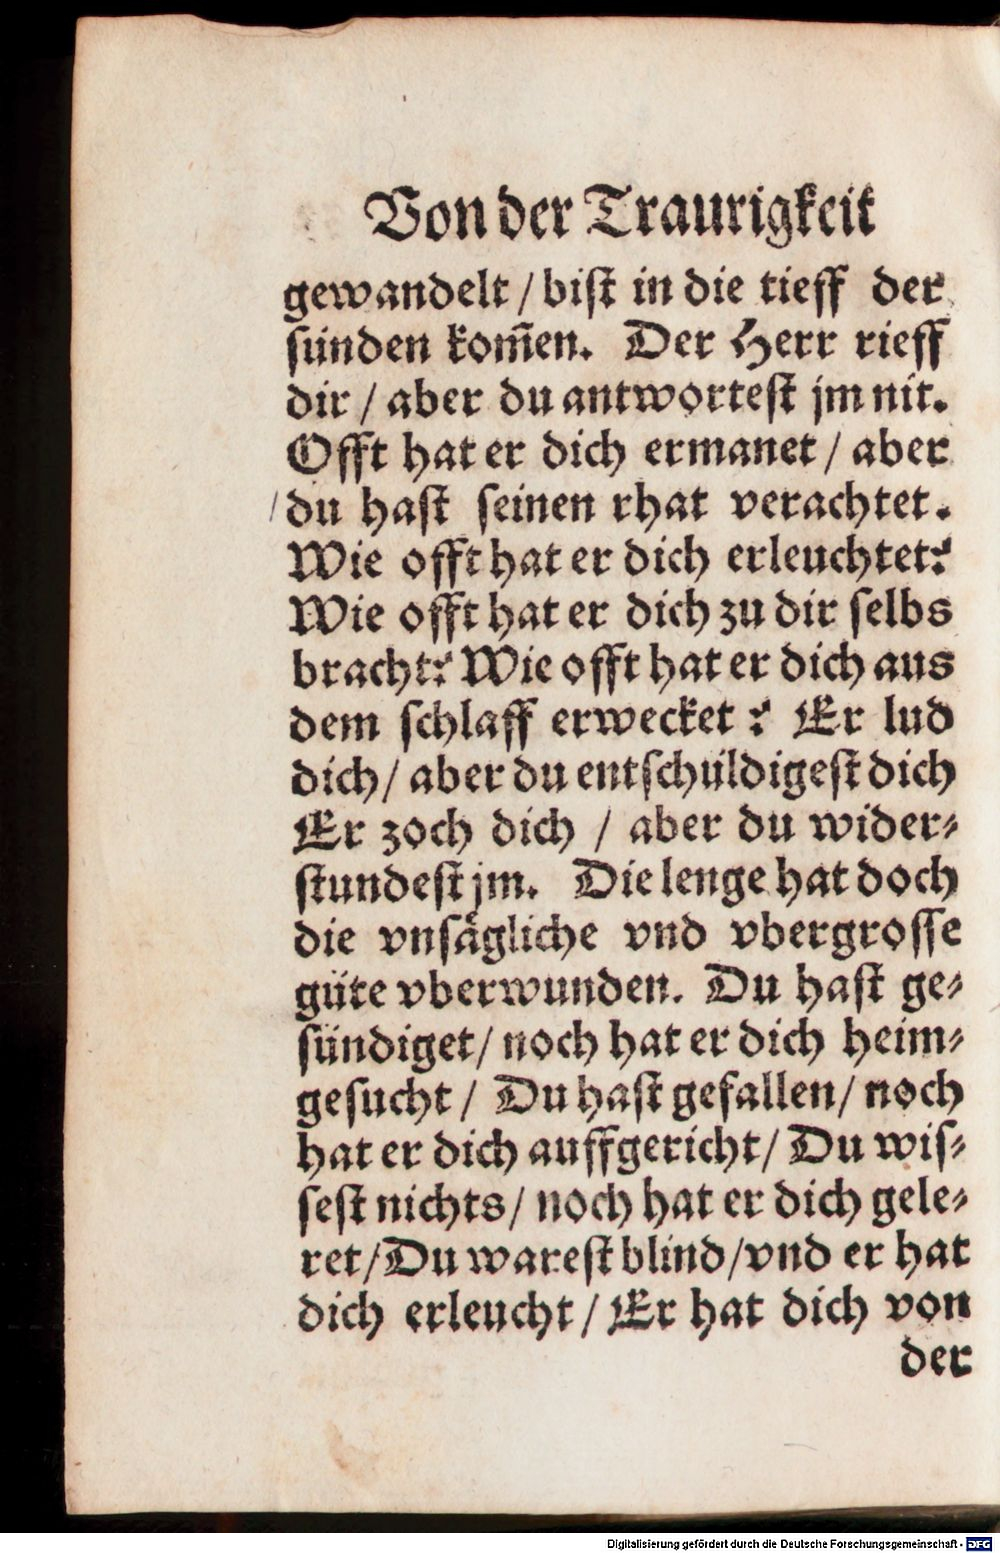 Von der Traurigkeit
gewandelt / bist in die tieff der
sünden kom̃en. Der Herr rieff
dir / aber du antwortest jm nit.
Offt hat er dich ermanet / aber
du hast seinen rhat verachtet.
Wie offt hat er dich erleuchtet?
Wie offt hat er dich zu dir selbs
bracht? Wie offt hat er dich aus
dem schlaff erwecket? Er lud
dich / aber du entschüldigest dich
Er zoch dich / aber du wider⸗
stundest jm. Die lenge hat doch
die vnsägliche vnd vbergrosse
güte vberwunden. Du hast ge⸗
sündiget / noch hat er dich heim⸗
gesucht / Du hast gefallen / noch
hat er dich auffgericht / Du wis⸗
sest nichts / noch hat er dich gele⸗
ret / Du warest blind / vnd er hat
dich erleucht / Er hat dich von
der
Digitalisierung gefördert durch die Deutsche Forschungsgemeinschaft - DFG